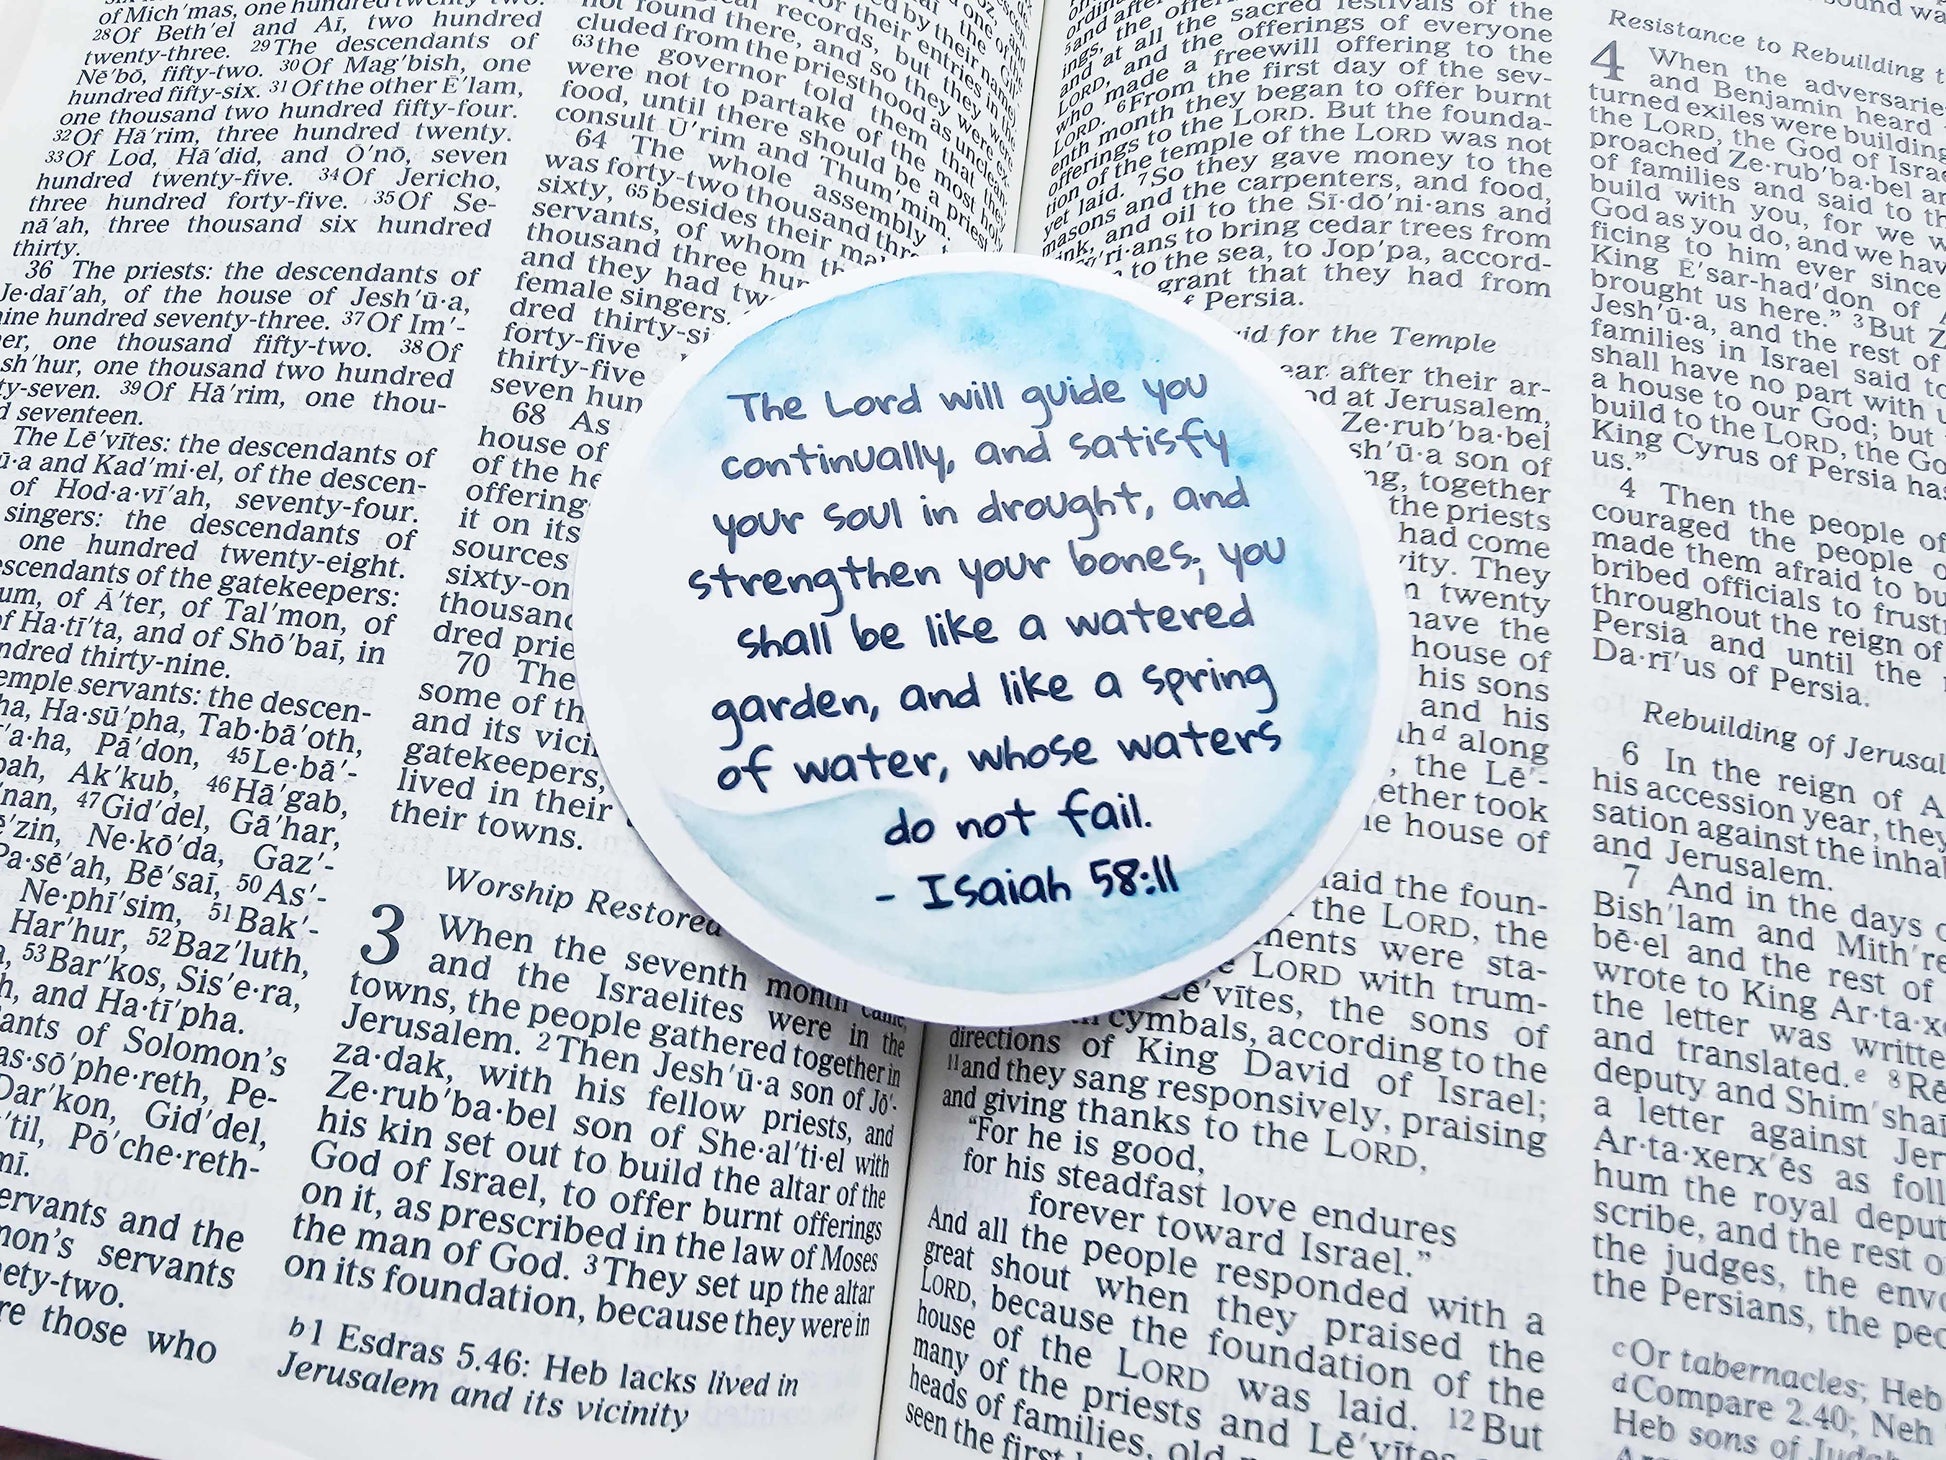 of Mich′mas, one hundred twenty-two.
28Of Beth′el and Aī, two hundred
twenty-three. 29The descendants of
Nē′bō, fifty-two. 30Of Mag′bish, one
hundred fifty-six. 31Of the other Ē′lam,
one thousand two hundred fifty-four.
32Of Hā′rim, three hundred twenty.
33Of Lod, Hā′did, and Ō′nō, seven
hundred twenty-five. 34Of Jericho,
three hundred forty-five. 35Of Se-
nā′ah, three thousand six hundred
thirty.
36 The priests: the descendants of
Je·daī′ah, of the house of Jesh′ū·a,
nine hundred seventy-three. 37Of Im′-
er, one thousand fifty-two. 38Of
sh′hur, one thousand two hundred
ty-seven. 39Of Hā′rim, one thou-
d seventeen.
The Lē′vītes: the descendants of
ū·a and Kad′mi·el, of the descen-
of Hod·a·vī′ah, seventy-four.
singers: the descendants of
one hundred twenty-eight.
escendants of the gatekeepers:
um, of Ā′ter, of Tal′mon, of
of Ha·tī′ta, and of Shō′baī, in
ndred thirty-nine.
emple servants: the descen-
ha, Ha·sū′pha, Tab·bā′oth,
′a·ha, Pā′don, 45Le·bā′-
bah, Ak′kub, 46Hā′gab,
′nan, 47Gid′del, Gā′har,
ē′zin, Ne·kō′da, Gaz′-
Pa·sē′ah, Bē′saī, 50As′-
Ne·phī′sim, 51Bak′-
Har′hur, 52Baz′luth,
, 53Bar′kos, Sis′e·ra,
h, and Ha·tī′pha.
ants of Solomon's
as·sō′phe·reth, Pe-
Dar′kon, Gid′del,
′til, Pō′che·reth-
mī.
ervants and the
mon's servants
ety-two.
re those who
not found there, and so they were ex-
cluded from the priesthood as unclean;
63the governor told them that they
were not to partake of the most holy
food, until there should be a priest to
consult Ū′rim and Thum′mim.
64 The whole assembly
was forty-two thousand three
sixty, 65besides their ma
servants, of whom th
thousand three hun
and they had two
female singers.
dred thirty-si
forty-five
thirty-five
seven hun
68 As
house of
of the he
offering
it on its
sources
sixty-on
thousand
dred prie
70 The
some of th
and its vici
gatekeepers,
lived in their
their towns.
Worship Restored
3 When the seventh month came,
and the Israelites were in the
towns, the people gathered together in
Jerusalem. 2Then Jesh′ū·a son of Jō′-
za·dak, with his fellow priests, and
Ze·rub′ba·bel son of She·al′ti·el with
his kin set out to build the altar of the
God of Israel, to offer burnt offerings
on it, as prescribed in the law of Moses
the man of God. 3They set up the altar
on its foundation, because they were in
b1 Esdras 5.46: Heb lacks lived in
Jerusalem and its vicinity
The Lord will guide you
continually, and satisfy
your soul in drought, and
strengthen your bones; you
shall be like a watered
garden, and like a spring
of water, whose waters
do not fail.
- Isaiah 58:11
and at all the sacred festivals of the
LORD, and the offerings of everyone
who made a freewill offering to the
LORD. 6From the first day of the sev-
enth month they began to offer burnt
offerings to the LORD. But the founda-
tion of the temple of the LORD was not
yet laid. 7So they gave money to the
masons and the carpenters, and food,
ink, and oil to the Sī·dō′ni·ans and
y′ri·ans to bring cedar trees from
to the sea, to Jop′pa, accord-
grant that they had from
f Persia.
id for the Temple
ear after their ar-
od at Jerusalem,
Ze·rub′ba·bel
sh′ū·a son of
ng, together
the priests
had come
vity. They
n twenty
have the
house of
his sons
and his
ahd along
, the Lē′-
ether took
he house of
laid the foun-
the LORD, the
ments were sta-
e LORD with trum-
Lē′vītes, the sons of
cymbals, according to the
directions of King David of Israel;
11and they sang responsively, praising
and giving thanks to the LORD,
“For he is good,
for his steadfast love endures
forever toward Israel.”
And all the people responded with a
great shout when they praised the
LORD, because the foundation of the
house of the LORD was laid. 12But
many of the priests and Lē′vītes
heads of families, old
seen the first
Resistance to Rebuilding t
4 When the adversarie
and Benjamin heard
turned exiles were building
the LORD, the God of Israe
proached Ze·rub′ba·bel an
of families and said to th
build with you, for we w
God as you do, and we hav
ficing to him ever since
King Ē′sar-had′don of A
brought us here.” 3But Z
Jesh′ū·a, and the rest of
families in Israel said to
shall have no part with u
a house to our God; but
build to the LORD, the Go
King Cyrus of Persia has
us.”
4 Then the people of
couraged the people o
made them afraid to bu
bribed officials to frust
throughout the reign of
Persia and until the
Da·rī′us of Persia.
Rebuilding of Jerusal
6 In the reign of A
his accession year, they
sation against the inhab
and Jerusalem.
7 And in the days o
Bish′lam and Mith′re
bē·el and the rest of
wrote to King Ar·ta·x
the letter was writte
and translated.e 8Rē
deputy and Shim′shaī
a letter against Jer
Ar·ta·xerx′ēs as foll
hum the royal deput
scribe, and the rest o
the judges, the envo
the Persians, the peo
cOr tabernacles; Heb
dCompare 2.40; Neh
Heb sons of Judah